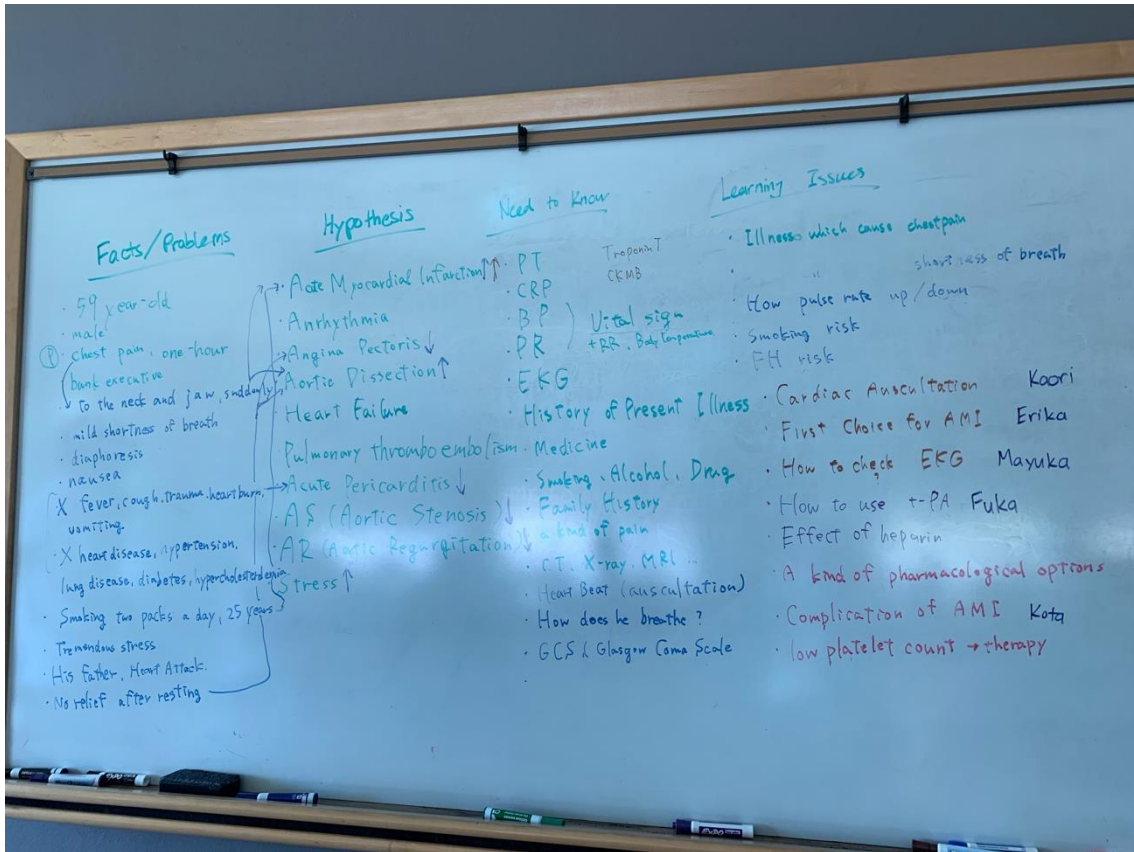 Facts/Problems
· 59 year-old
· male
Ⓟ· chest pain, one-hour
bank executive
to the neck and jaw, suddenly
· mild shortness of breath
· diaphoresis
· nausea
X fever, cough, trauma, heartburn,
vomiting.
· X heart disease, hypertension,
lung disease, diabetes, hypercholesterolemia
· Smoking two packs a day, 25 years
· Tremendous stress
· His father, Heart Attack.
· No relief after resting
Hypothesis
· Acute Myocardial Infarction ↑↑
· Arrhythmia
· Angina Pectoris ↓
· Aortic Dissection ↑
· Heart Failure
· Pulmonary thromboembolism
· Acute Pericarditis ↓
· AS (Aortic Stenosis) ↓
· AR (Aortic Regurgitation) ↓
· Stress ↑
Need to Know
· PT
Troponin T
CKMB
· CRP
· BP
· PR
Vital sign
+ RR, Body Temperature
· EKG
· History of Present Illness
· Medicine
· Smoking, Alcohol, Drug
· Family History
· a kind of pain
· CT, X-ray, MRI ...
· Heart Beat (auscultation)
· How does he breathe?
· GCS Glasgow Coma Scale
·
Learning Issues
· Illness which cause chestpain
· 〃 shortness of breath
· How pulse rate up/down
· Smoking risk
· FH risk
· Cardiac Auscultation Kaori
· First Choice for AMI Erika
· How to check EKG Mayuka
· How to use t-PA Fuka
· Effect of heparin
· A kind of pharmacological options
· Complication of AMI Kota
· low platelet count → therapy
EXPO